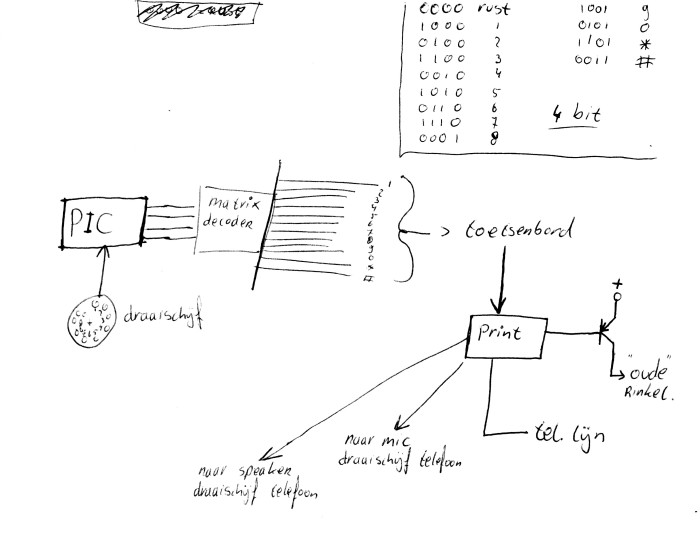 0000 rust
1000 1
0100 2
1100 3
0010 4
1010 5
0110 6
1110 7
0001 8
1001 9
0101 0
1101 *
0011 #
4 bit
PIC
matrix
decoder
1
2
3
4
5
6
7
8
9
0
*
#
toetsenbord
draaischijf
Print
+
"oude"
Rinkel.
tel. lijn
naar mic
draaischijf telefoon
naar speaker
draaischijf telefoon